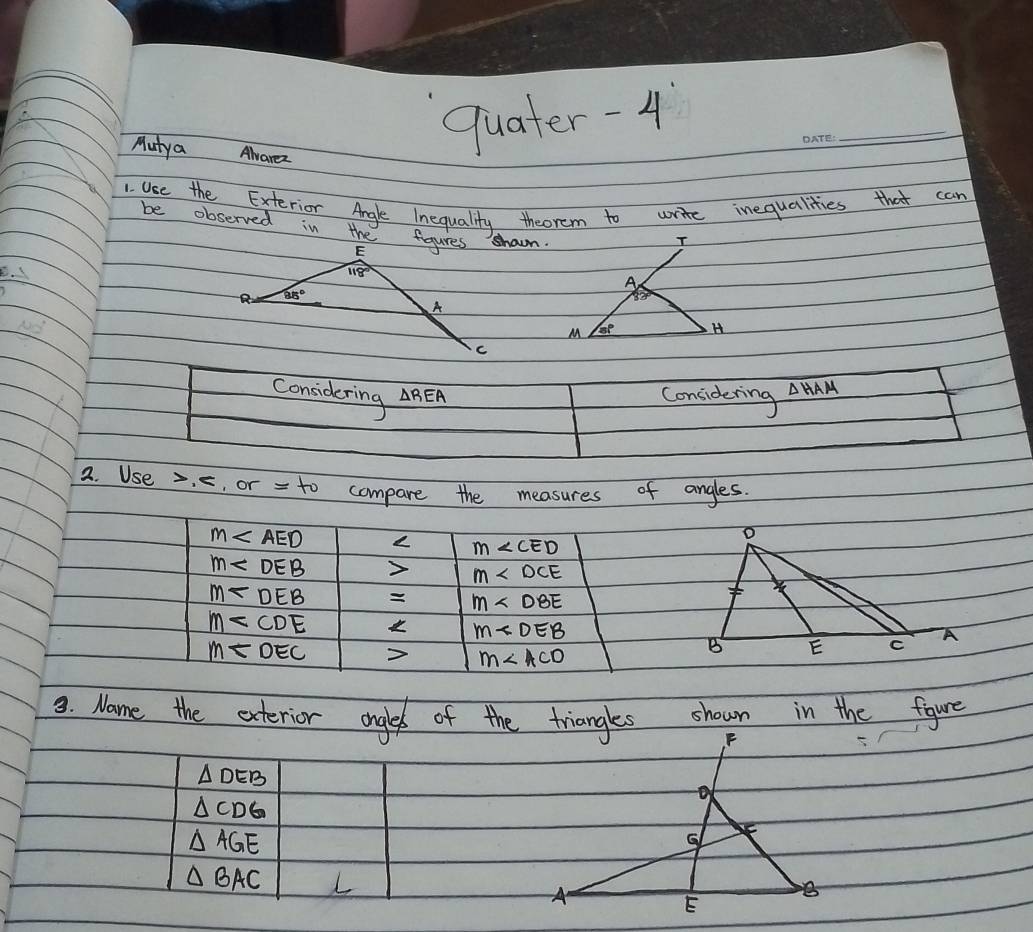 'quater - 4'
DATE:
Mutya Alvarez
1. Use the Exterior Angle Inequality theorem to write inequalities that can
be observed in the figures shown.
E
118°
R
A
C
T
A
M
H
Considering ΔREA
Considering ΔHAM
2. Use >, <, or = to compare the measures of angles.
m< AED < m<CED
m< DEB > m< DCE
m< DEB = m< DBE
m< CDE < m< DEB
m< DEC > m<ACD
D
B
E
C
A
3. Name the exterior angles of the triangles shown in the figure
Δ DEB
Δ CDG
Δ AGE
Δ BAC
F
D
G
C
A
E
B